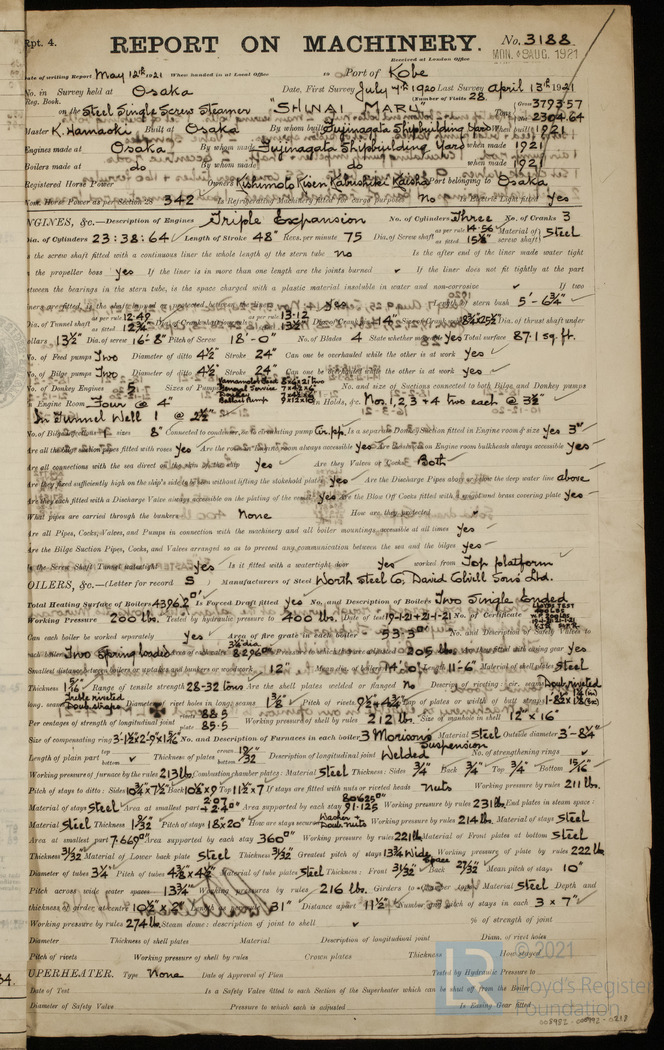 Rpt. 4.
REPORT ON MACHINERY.
No. 3188
Received at London Office MON. 8 AUG. 1921
Date of writing Report May 12th 1921 When handed in at Local Office Port of Kobe
No. in Survey held at Osaka Date, First Survey July 7th 1920 Last Survey April 13th 1921
Reg. Book. (Number of Visits 28
on the Steel Single Screw Steamer "SHINAI MARU" Gross 3793.57
2304.64
Master K. Hamaoki Built at Osaka By whom built Fujinagata Shipbuilding Yard When built 1921
Engines made at Osaka By whom made Fujinagata Shipbuilding Yard when made 1921
Boilers made at do By whom made do when made 1921
Registered Horse Power Owners Kishimoto Kisen Kabushiki Kaisha Port belonging to Osaka
Nom. Horse Power as per Section 28 342 Is Refrigerating Machinery fitted for cargo purposes No Is Electric Light fitted Yes
ENGINES, &c.—Description of Engines Triple Expansion No. of Cylinders Three No. of Cranks 3
Dia. of Cylinders 23:38:64 Length of Stroke 48" Revs. per minute 75 Dia. of Screw shaft as per rule 14.56" as fitted 15⅛" Material of screw shaft Steel
Is the screw shaft fitted with a continuous liner the whole length of the stern tube no Is the after end of the liner made water tight
in the propeller boss yes If the liner is in more than one length are the joints burned If the liner does not fit tightly at the part
between the bearings in the stern tube, is the space charged with a plastic material insoluble in water and non-corrosive If two
liners are fitted, is the shaft lapped or protected between the liners Yes of stern bush 5'-6¾"
Dia. of Tunnel shaft as per rule 12.49 as fitted 12¾ as per rule 13.12 as fitted 13½ 14" Dia. of thrust shaft under
collars 13½" Dia. of screw 16'-8" Pitch of Screw 18'-0" No. of Blades 4 State whether moveable Yes Total surface 87.1 sq. ft.
No. of Feed pumps Two Diameter of ditto 4½" Stroke 24" Can one be overhauled while the other is at work Yes
No. of Bilge pumps Two Diameter of ditto 4½" Stroke 24" Can one be overhauled while the other is at work Yes
No. of Donkey Engines 5 Sizes of Pumps No. and size of Suctions connected to both Bilge and Donkey pumps
In Engine Room Four @ 4" In Holds, &c. Nos. 1, 2, 3 + 4 two each @ 3½"
In Tunnel Well 1 @ 2½"
No. of Bilge Injections 1 sizes 8" Connected to condenser, or to circulating pump Cir. pp. Is a separate Donkey Suction fitted in Engine room & size Yes 3"
Are all the bilge suction pipes fitted with roses Yes Are the roses in Engine room always accessible Yes Are the sluices on Engine room bulkheads always accessible Yes
Are all connections with the sea direct on the skin of the ship Yes Are they Valves or Cocks Both
Are they fixed sufficiently high on the ship's side to be seen without lifting the stokehold plates Yes Are the Discharge Pipes above or below the deep water line above
Are they each fitted with a Discharge Valve always accessible on the plating of the vessel Yes Are the Blow Off Cocks fitted with a spigot and brass covering plate Yes
What pipes are carried through the bunkers None How are they protected
Are all Pipes, Cocks, Valves, and Pumps in connection with the machinery and all boiler mountings accessible at all times Yes
Are the Bilge Suction Pipes, Cocks, and Valves arranged so as to prevent any communication between the sea and the bilges Yes
Is the Screw Shaft Tunnel watertight Yes Is it fitted with a watertight door Yes worked from Top platform
BOILERS, &c.—(Letter for record S) Manufacturers of Steel Worth Steel Co, David Colvill Sons Ltd.
Total Heating Surface of Boilers 4396.2 Is Forced Draft fitted Yes No. and Description of Boilers Two Single Ended
Working Pressure 200 lbs. Tested by hydraulic pressure to 400 lbs. Date of test 19-1-21 & 21-1-21 No. of Certificate
Can each boiler be worked separately Yes Area of fire grate in each boiler 53.3 No. and Description of Safety Valves to
each boiler Two Spring loaded Area of each valve 8.296 205 lbs. Are they fitted with easing gear Yes
Smallest distance between boilers or uptakes and bunkers or woodwork 12" Mean dia. of boilers 14'-0" Length 11'-6" Material of shell plates Steel
Thickness 1 5/16 Range of tensile strength 28-32 tons Are the shell plates welded or flanged No Descrip. of riveting: cir. seams Doub riveted
long. seams Treble riveted Doub straps Diameter of rivet holes in long. seams 1½" Pitch of rivets 9½ + 4¾ Lap of plates or width of butt straps
Per centages of strength of longitudinal joint rivets 88.5 plate 85.5 Working pressure of shell by rules 212 lb. Size of manhole in shell 12" x 16"
Size of compensating ring No. and Description of Furnaces in each boiler 3 Morisons Suspension Material Steel Outside diameter 3'-8¾"
Length of plain part top bottom Thickness of plates crown bottom 19/32" Description of longitudinal joint Welded No. of strengthening rings
Working pressure of furnace by the rules 213 lb. Combustion chamber plates: Material Steel Thickness: Sides ¾" Back ¾" Top ¾" Bottom 15/16"
Pitch of stays to ditto: Sides 10¾ x 7½" Back 10⅜ x 9 Top 11½ x 7 If stays are fitted with nuts or riveted heads Nuts Working pressure by rules 211 lbs.
Material of stays Steel Area at smallest part 2.07 + 2.40 Area supported by each stay 80.625 91.125 Working pressure by rules 231 lb. End plates in steam space:
Material Steel Thickness 1 5/32" Pitch of stays 18 x 20" How are stays secured Washer + Doub. nuts Working pressure by rules 214 lb. Material of stays Steel
Area at smallest part 7.669 Area supported by each stay 360 Working pressure by rules 221 lb. Material of Front plates at bottom Steel
Thickness 31/32" Material of Lower back plate Steel Thickness 31/32" Greatest pitch of stays 13¾ Wide Space Working pressure of plate by rules 222 lb.
Diameter of tubes 3¼" Pitch of tubes 4⅜ x 4½" Material of tube plates Steel Thickness: Front 31/32" Back 27/32" Mean pitch of stays 10"
Pitch across wide water spaces 13¾" Working pressures by rules 216 lbs. Girders to Material Steel Depth and
thickness of girder at centre 10½ x 2" 31" Distance apart 11½" Number and pitch of stays in each 3 x 7"
Working pressure by rules 274 lb. Steam dome: description of joint to shell % of strength of joint
Diameter Thickness of shell plates Material Description of longitudinal joint Diam. of rivet holes
Pitch of rivets Working pressure of shell by rules Crown plates Thickness How stayed
SUPERHEATER. Type None Date of Approval of Plan Tested by Hydraulic Pressure to
Date of Test Is a Safety Valve fitted to each Section of the Superheater which can be shut off from the Boiler
Diameter of Safety Valve Pressure to which each is adjusted Is Easing Gear fitted
© 2021
Lloyd's Register
Foundation
008992-008992-0218